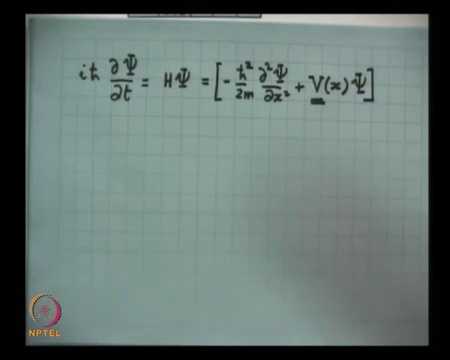 iħ ∂Ψ/∂t = HΨ = [ - ħ²/2m ∂²Ψ/∂x² + V(x) Ψ ]
NPTEL